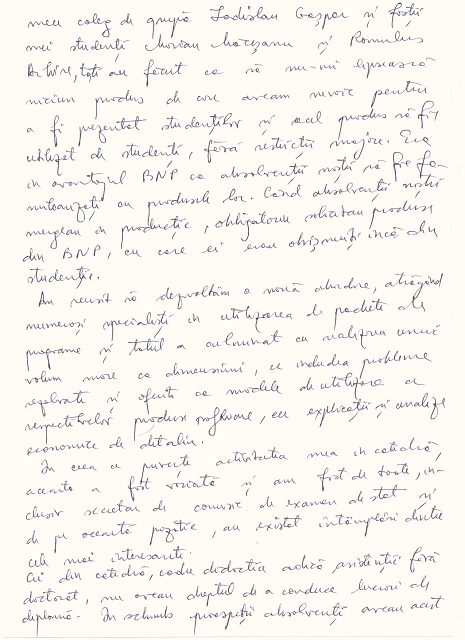 meu coleg de grupă Ladislau Gaspar și foștii
mei studenți Marian Mățeșanu și Romulus
toți au făcut ca să nu-mi lipsească
niciun produs de care aveam nevoie pentru
a fi prezentat studenților și acel produs să fie
utilizat de studenți, fără restricții majore. Era
în avantajul BNP ca absolvenții noștri să fie fa-
miliarizați cu produsele lor. Când absolvenții noștri
mergeau în producție, obligatoriu solicitau produse
din BNP, cu care ei erau obișnuiți încă din
studenție.
Am reușit să dezvoltăm o nouă abordare, atrăgând
numeroși specialiști în utilizarea de pachete de
programe și totul a culminat cu realizarea unui
volum mare ca dimensiuni, ce includea probleme
rezolvate și oferite ca modele de utilizare a
respectivelor produse software, cu explicații și analize
economice de detaliu.
În ceea ce privește activitatea mea în catedră,
aceasta a fost variată și am fost de toate, in-
clusiv secretar de comisie de examen de stat și
de pe această poziție, au existat întâmplări dintre
cele mai interesante.
Cei din catedră, cadre didactice adică, asistenții fără
doctorat, nu aveau dreptul de a conduce lucrări de
diplomă. În schimb proaspeții absolvenți aveau acest